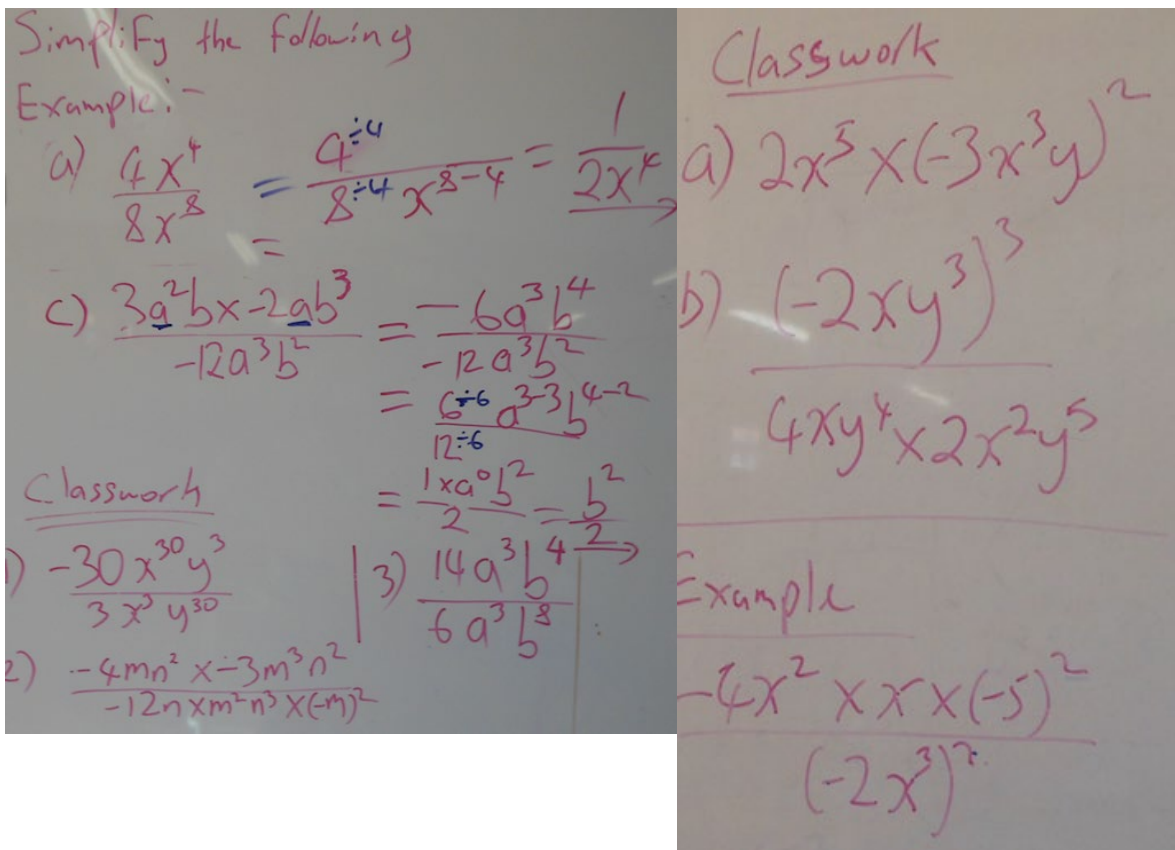 Simplify the following
Example:-
a) 4x⁴/8x⁸ = 4÷⁴/8÷⁴x⁸⁻⁴ = 1/2x⁴
=
c) 3a²bx-2ab³/-12a³b² = -6a³b⁴/-12a³b²
= 6÷⁶a³⁻³b⁴⁻²/12÷⁶
= 1xa⁰b²/2 = b²/2
Classwork
1) -30x³⁰y³/3x³y³⁰
2) -4mn² x -3m³n²/-12n x m²n³ x (-m)²
3) 14a³b⁴/6a³b⁸
Classwork
a) 2x⁵ x (-3x³y)²
b) (-2xy³)³/4xy⁴ x 2x²y⁵
Example
-4x² x x x (-5)²/(-2x³)²